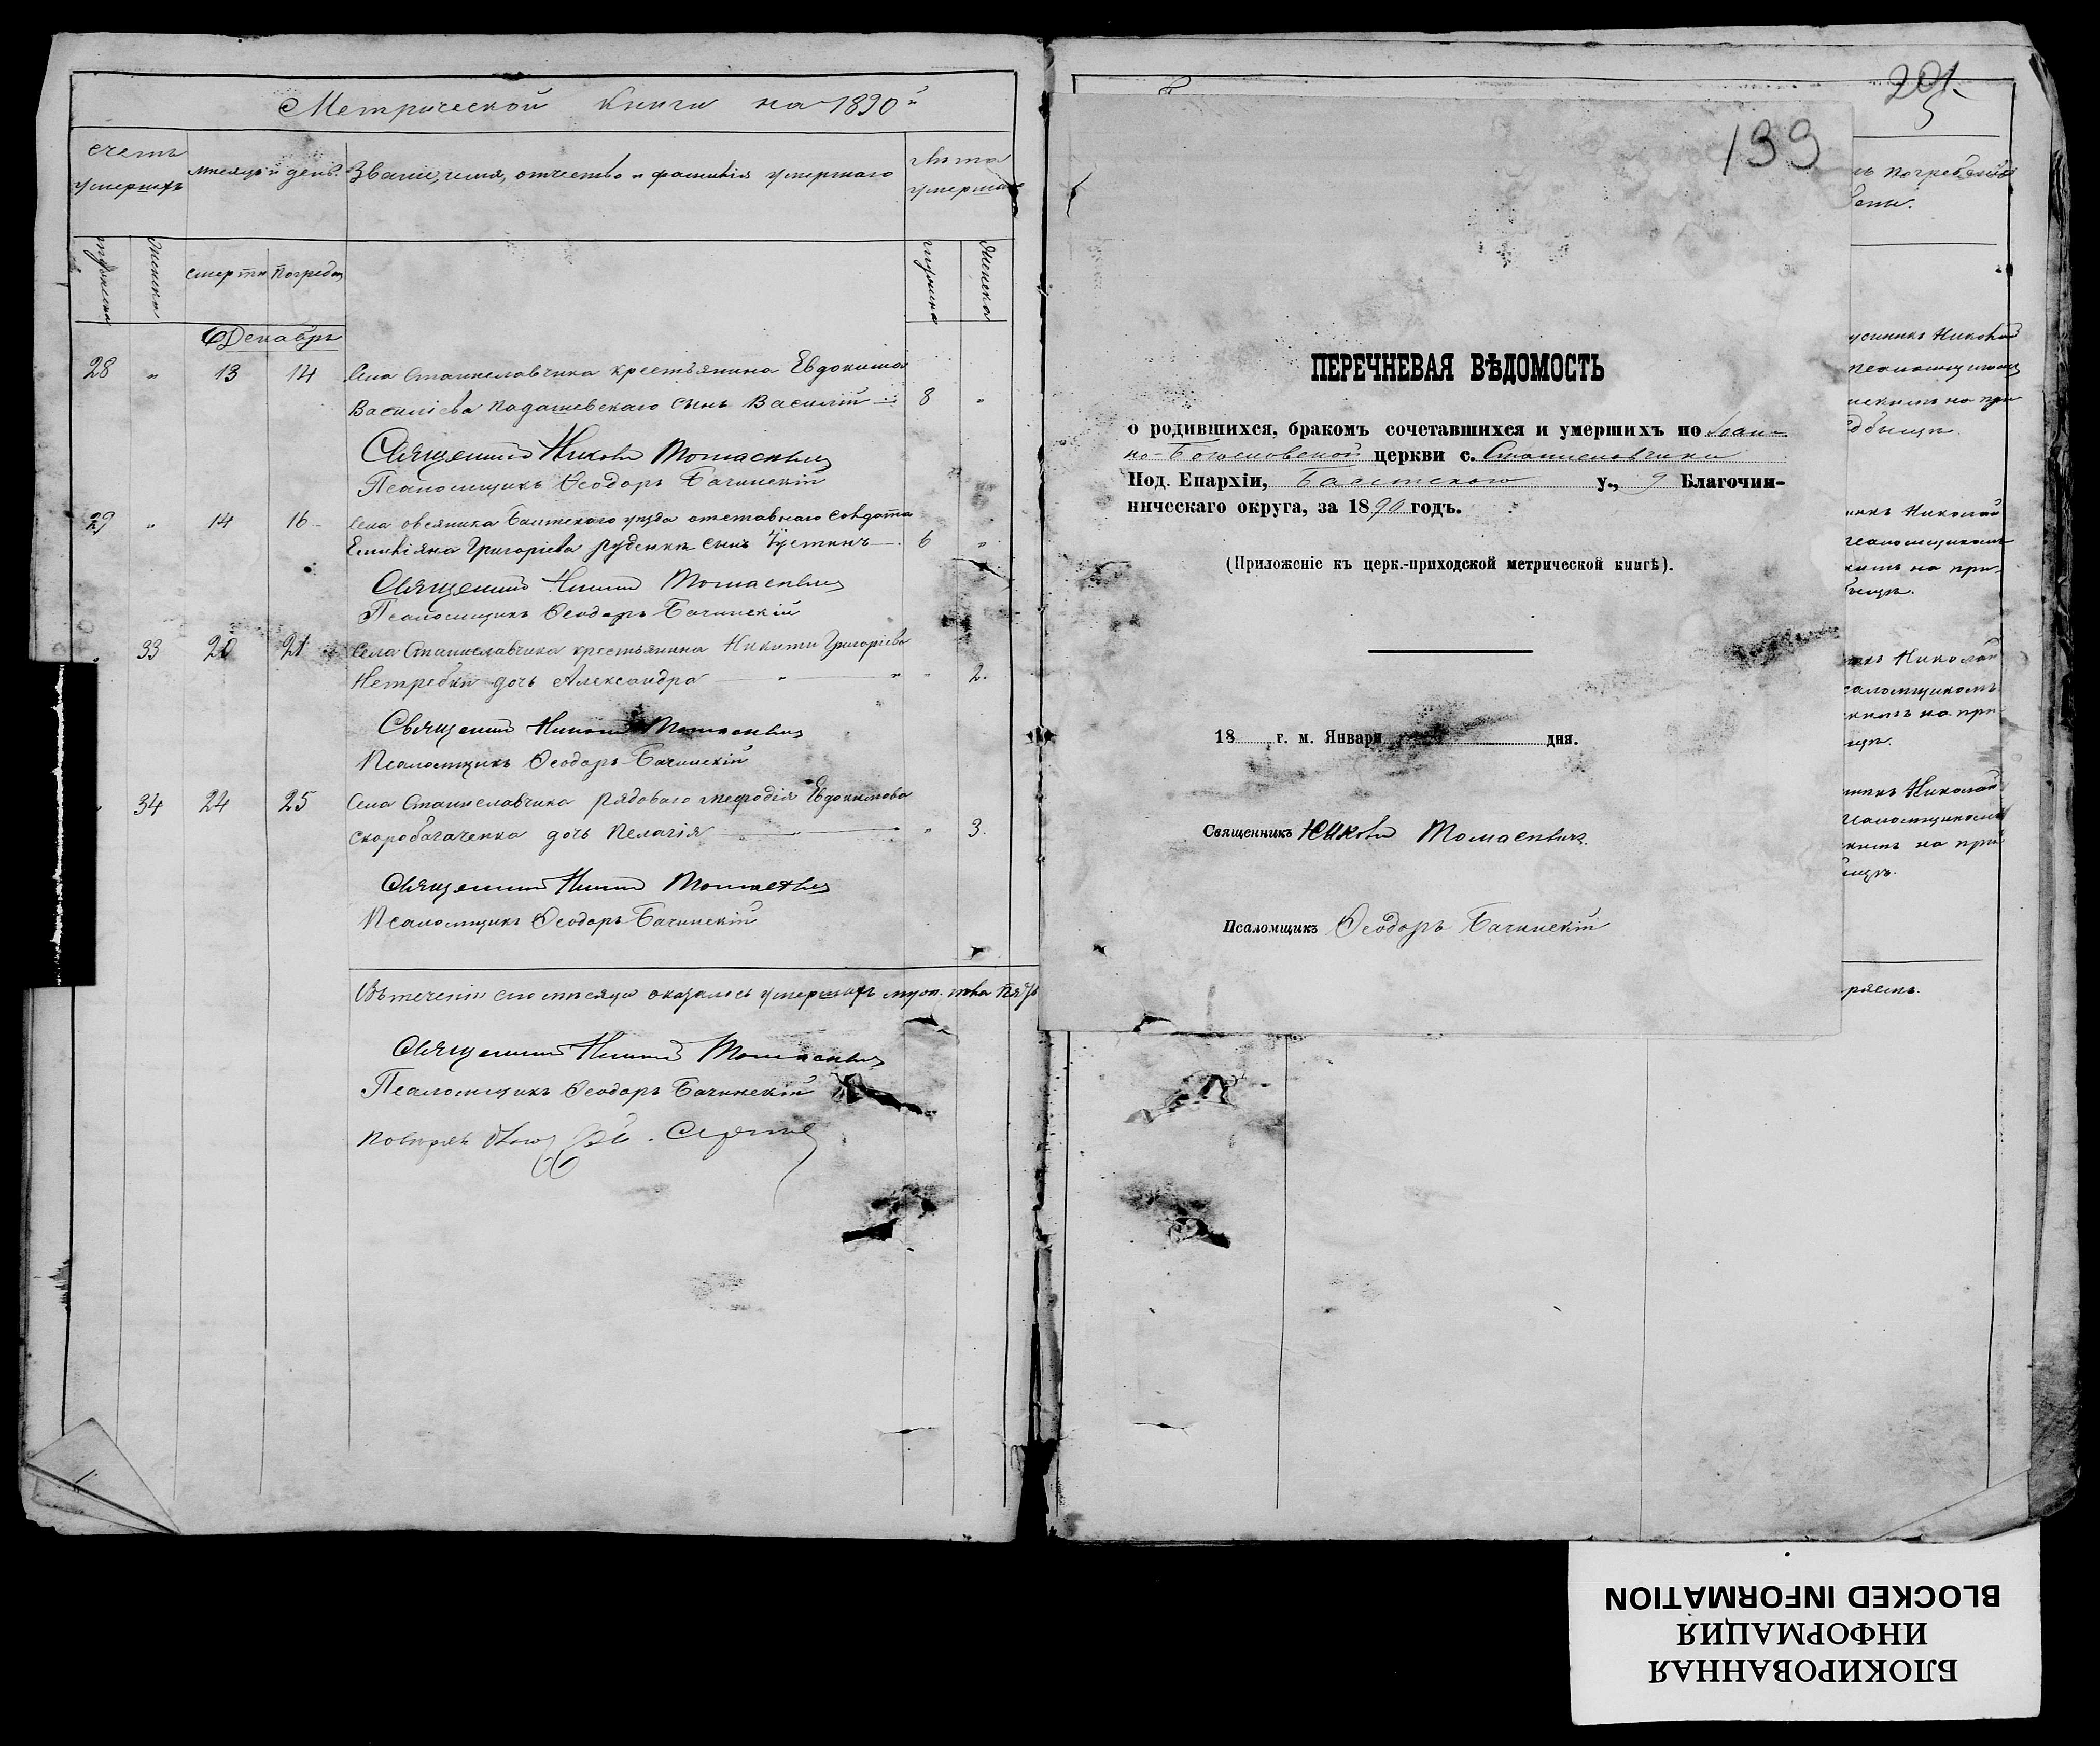 Метрической книги на 1890й
счетъ умершихъ
мѣсяцъ и день
Званіе, имя, отчество и фамилія умершаго
лѣта умершаго
мужеска
женска
смерти
погребен
мужеска
женска
Декабрь
28 " 13 14 Села Станиславчика крестьянина Евдокима
Василіева Подашевскаго сынъ Василій 8 "
Священникъ Николай Томасевичъ
Псаломщикъ Ѳеодоръ Бачинскій
29 " 14 16 Села овсяника Балтскаго уѣзда отставнаго солдата
Григоріева Руденка сынъ Іустинъ 6 "
Священникъ Николай Томасевичъ
Псаломщикъ Ѳеодоръ Бачинскій
" 33 20 21 Села Станиславчика крестьянина Никиты Григоріева
Нетребки дочь Александра " " " 2.
Священникъ Николай Томасевичъ
Псаломщикъ Ѳеодоръ Бачинскій
" 34 24 25 Села Станиславчика рядоваго Меѳодія Евдокимова
Скоробагаченка дочь Пелагія " " " 3.
Священникъ Николай Томасевичъ
Псаломщикъ Ѳеодоръ Бачинскій
Въ теченіи сего мѣсяца оказалось умершихъ муж. пола пять
Священникъ Николай Томасевичъ
Псаломщикъ Ѳеодоръ Бачинскій
201
133
ПЕРЕЧНЕВАЯ ВѢДОМОСТЬ
о родившихся, бракомъ сочетавшихся и умершихъ по Іоан-
но-Богословской церкви с. Станиславчика
Под. Епархіи, Балтскаго у., 9 Благочин-
ническаго округа, за 1890 годъ.
(Приложеніе къ церк.-приходской метрической книгѣ).
18 г. м. Января дня.
Священникъ Николай Томасевичъ.
Псаломщикъ Ѳеодоръ Бачинскій
ъ погребеніе
Николай
на при
Николай
на при-
Николай
саломщикомъ
на при
Николай
на при
BLOCKED INFORMATION
ИНФОРМАЦИЯ
БЛОКИРОВАННАЯ